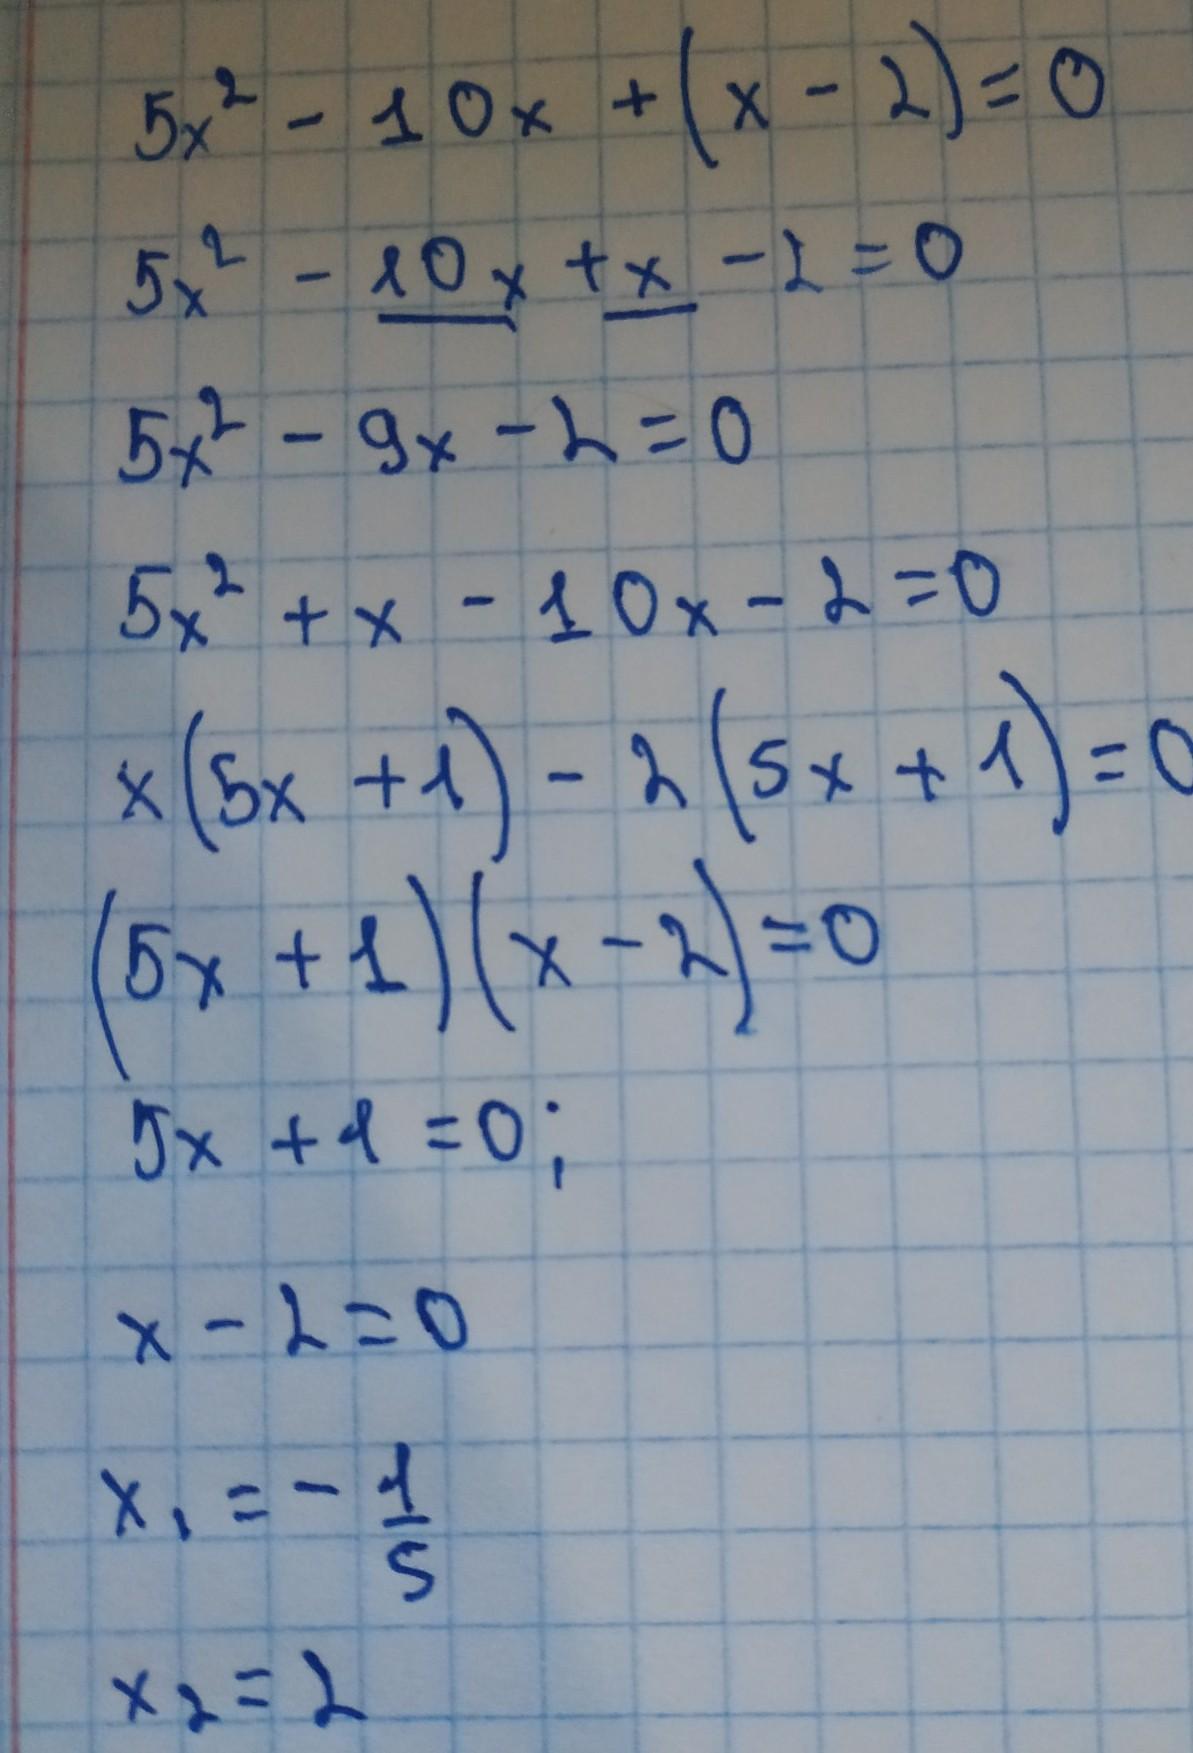 5x² - 10x + (x - 2) = 0
5x² - 10x + x - 2 = 0
5x² - 9x - 2 = 0
5x² + x - 10x - 2 = 0
x(5x + 1) - 2(5x + 1) = 0
(5x + 1)(x - 2) = 0
5x + 1 = 0;
x - 2 = 0
x₁ = - 1/5
x₂ = 2